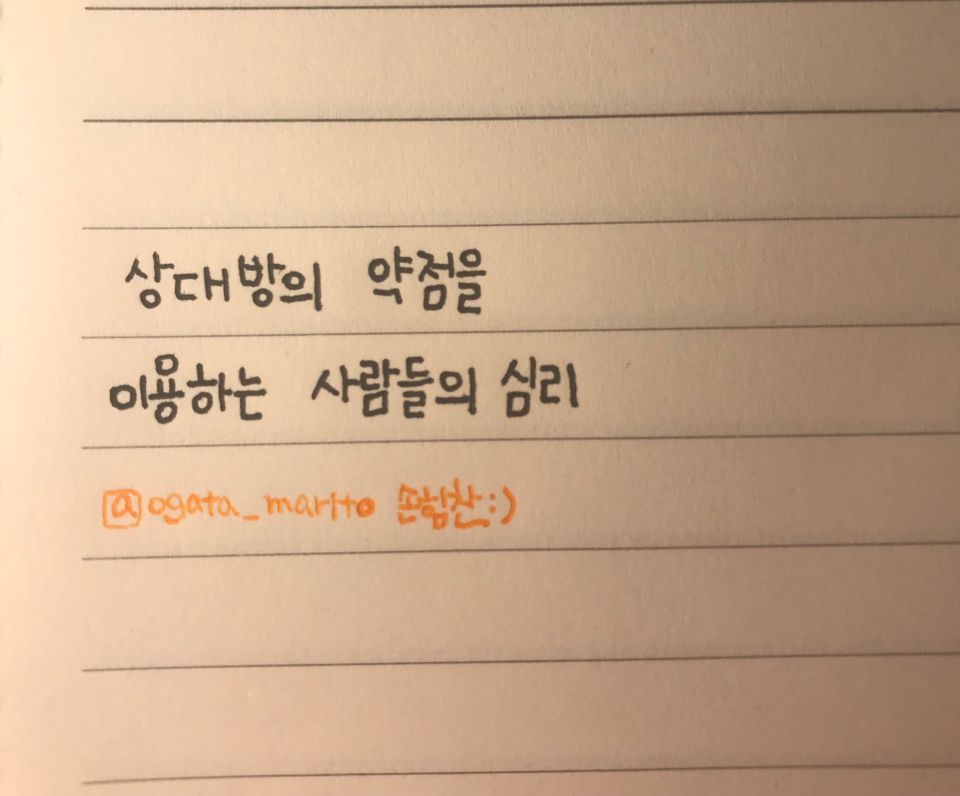 상대방의 약점을
이용하는 사람들의 심리
@ogata_marito 손힘찬:)